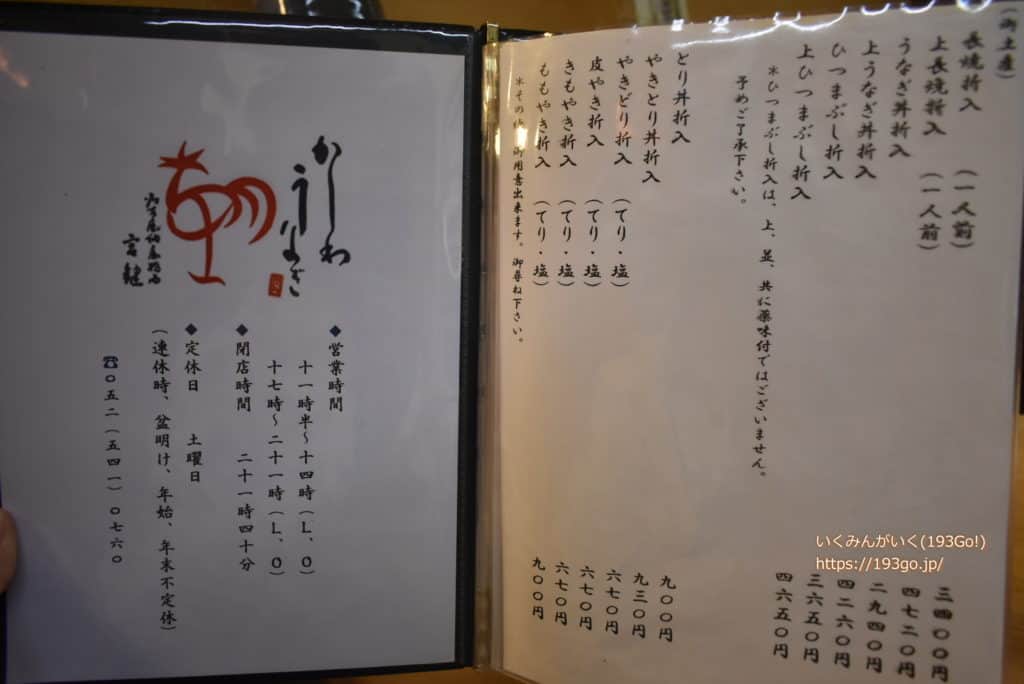 (御土産)
長焼折入 (一人前) 三四〇〇円
上長焼折入 (一人前) 四七二〇円
うなぎ丼折入 二九四〇円
上うなぎ丼折入 四二六〇円
ひつまぶし折入 三六五〇円
上ひつまぶし折入 四六五〇円
*ひつまぶし折入は、上、並、共に薬味付ではございません。
予めご了承下さい。
とり丼折入 九〇〇円
やきとり丼折入 九三〇円
やきどり折入 (てり・塩) 六七〇円
皮やき折入 (てり・塩) 六七〇円
きもやき折入 (てり・塩) 六七〇円
ももやき折入 (てり・塩) 九〇〇円
*その 御用意出来ます。御尋ね下さい。
かしわ
うなぎ
宮鍵
◆営業時間
十一時半~十四時(L、O)
十七時~二十一時(L、O)
◆閉店時間 二十一時四十分
◆定休日 土曜日
(連休時、盆明け、年始、年末不定休)
☎〇五二(五四一)〇七六〇
いくみんがいく(193Go!)
https://193go.jp/